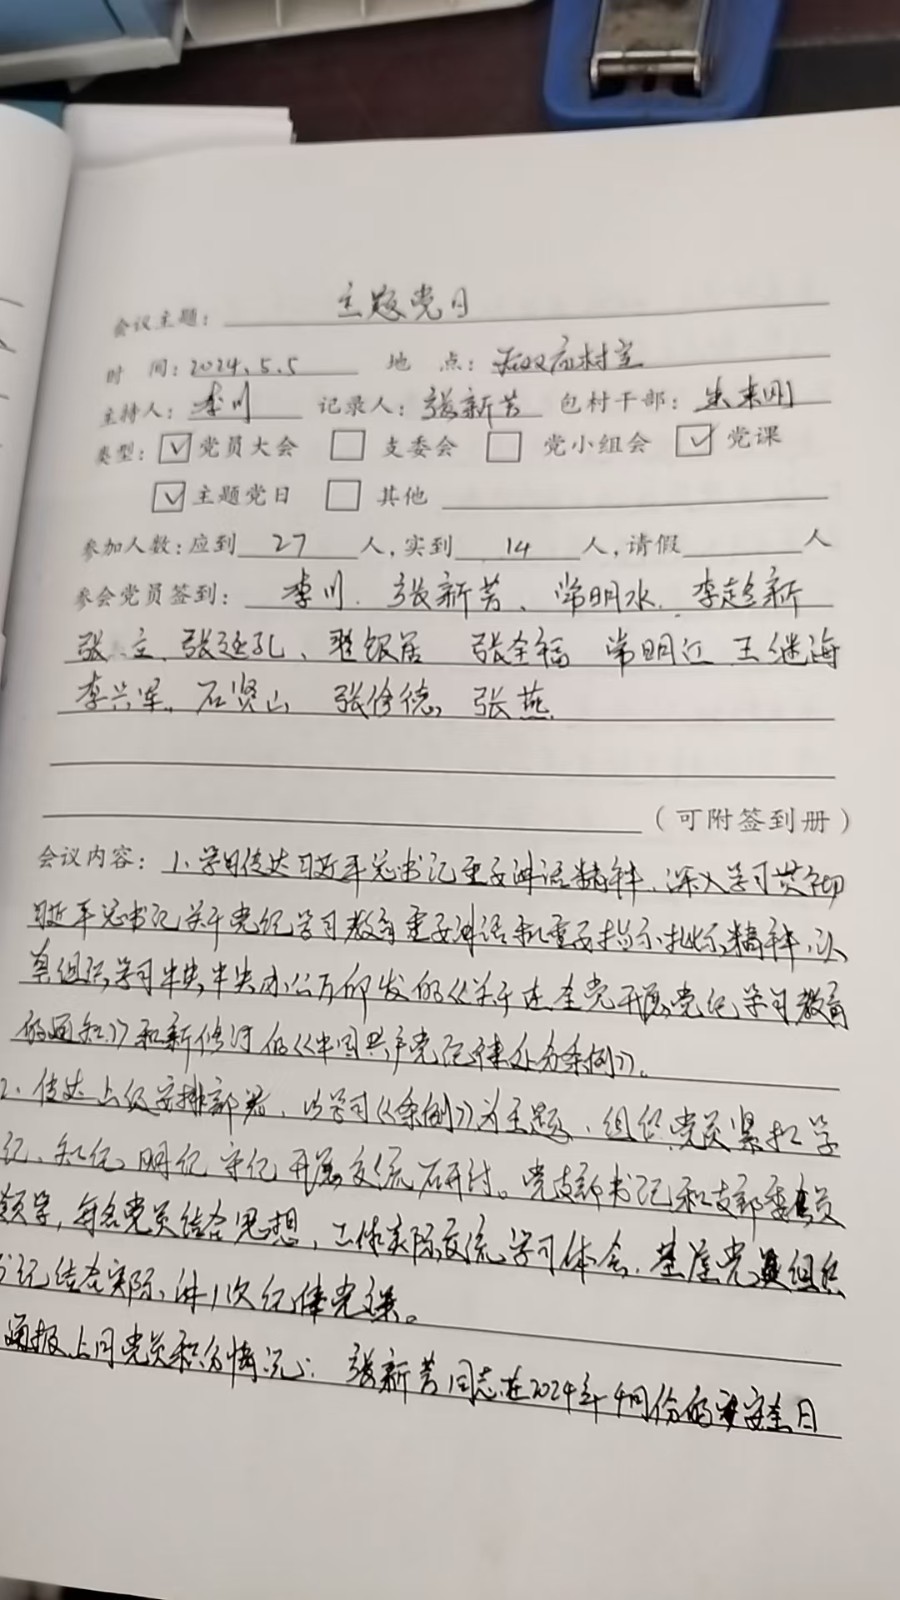 会议主题： 主题党日
时 间：2024.5.5 地 点：村室
主持人：李川 记录人：张新芳 包村干部：朱来刚
类型：☑党员大会 □支委会 □党小组会 ☑党课
☑主题党日 □其他
参加人数：应到 27 人，实到 14 人，请假 人
参会党员签到： 李川、张新芳、常明水、李趁新
张立、张延孔、银居 张全福 常明江 王继海
李兴军、石贤山 张修德、张燕
（可附签到册）
会议内容：1、学习传达习近平总书记重要讲话精神，深入学习贯彻
习近平总书记关于党纪学习教育重要讲话和重要指示批示精神，认
真组织学习中央中央办公厅印发的《关于在全党开展党纪学习教育
的通知》和新修订的《中国共产党纪律处分条例》。
2、传达上级安排部署，以学习《条例》为主题，组织党员紧扣学
纪、知纪、明纪、守纪开展交流研讨。党支部书记和支部委员
领学，每名党员结合思想、工作实际交流学习体会，基层党组织
书记结合实际，讲1次纪律党课。
通报上月党员积分情况：张新芳同志在2024年4月份的安全日